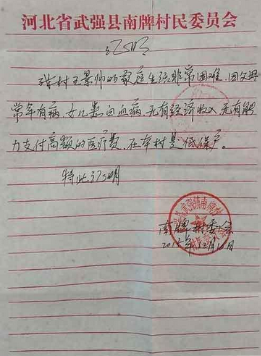 河北省武强县南牌村民委员会
证明
我村王景师的家庭生活非常困难，因父母
常年有病，女儿患白血病，无有经济收入，无有能
力支付高额的医疗费，在本村是低保户。
特此证明
南牌村委会